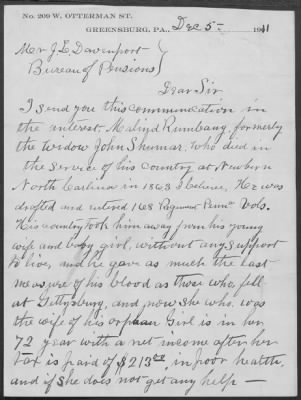 No. 209 W. OTTERMAN ST.
GREENSBURG, PA., Dec 5- 1911
Mr J. L. Davenport
Bureau of Pensions
Dear Sir
I send you this communication in
the interest, Malind Rumbaug, formerly
the widow John Shumar, who died in
the service of his country at Newbern
North Carlina in 1863 I believe, He was
drafted and retired 168 Regiment Penna Vols.
His country took him away from his young
wife and baby girl, without any support
to live, and he gave as much the last
measure of his blood as those who, fell
at Gettysburg, and now she who, was
the wife of his orphan Girl is in her
72 year with a net income after her
Tax is paid of $213.00, in poor health,
and if she does not get any help —